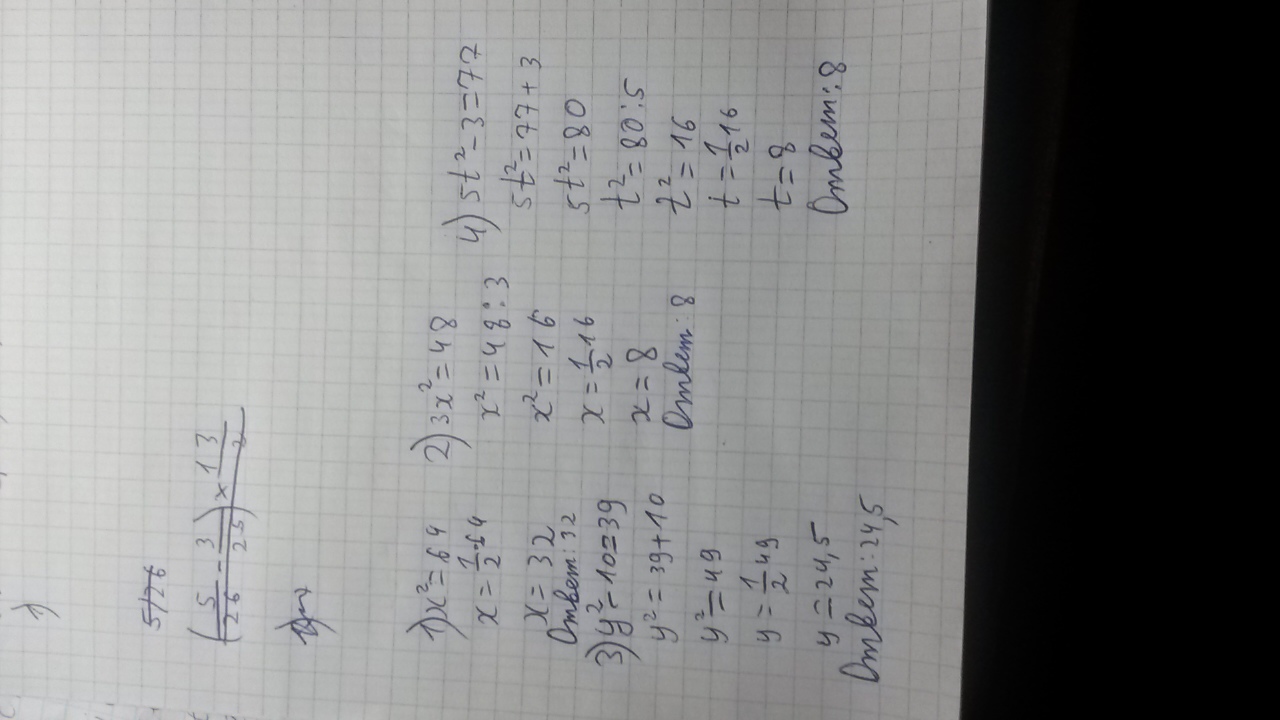 1)
5/26
(5/26 - 3/25) × 13/2
1) x² = 64
x = 1/2 · 64
x = 32
Ответ: 32
2) 3x² = 48
x² = 48 : 3
x² = 16
x = 1/2 16
x = 8
Ответ: 8
3) y² - 10 = 39
y² = 39 + 10
y² = 49
y = 1/2 49
y = 24,5
Ответ: 24,5
4) 5t² - 3 = 77
5t² = 77 + 3
5t² = 80
t² = 80 : 5
t² = 16
t = 1/2 16
t = 8
Ответ: 8